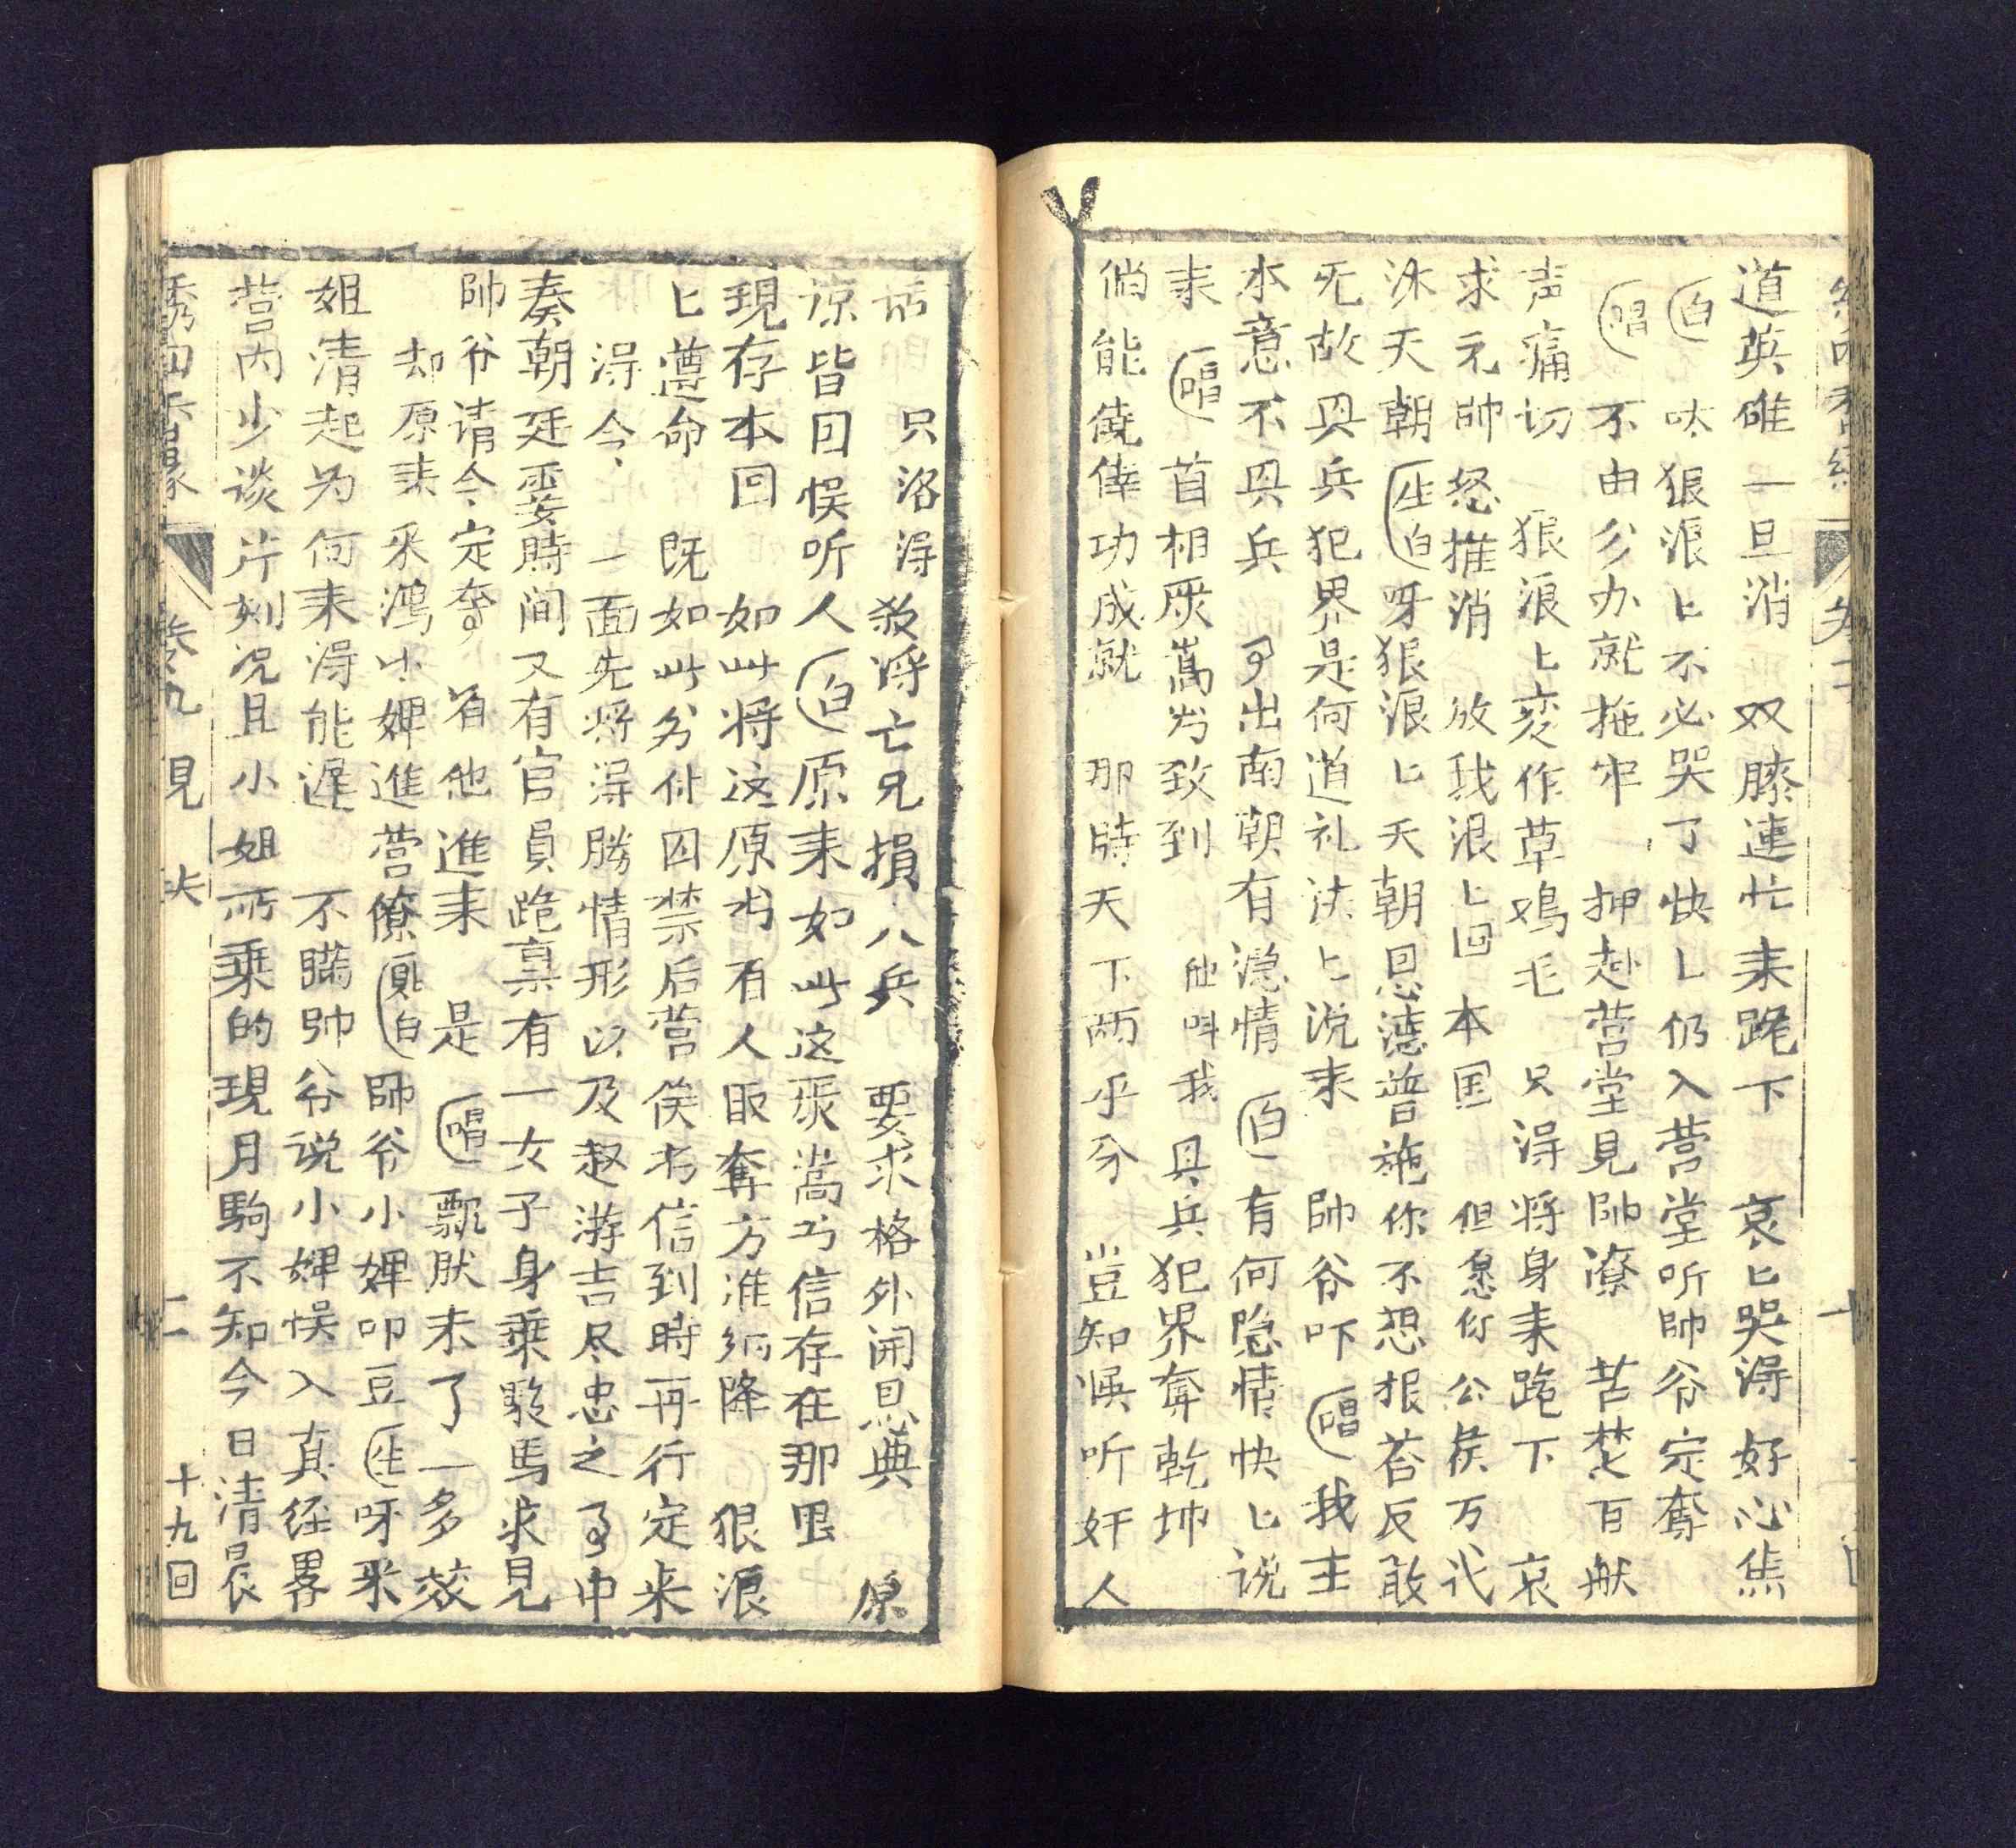 道英雄一旦消　双膝連忙来跪下　哀匕哭淂好心焦
白　呔狠浪匕不必哭了快匕仍入营堂听帥爷定奪
唱　不由分办就拖牢　押赴营堂見帥濴　苦楚百般
声痛切　狠浪匕变作草鳮毛　只淂将身耒跪下　哀
求元帥怒推消　放我浪匕回本国　但愿你公矦万代
沐天朝　生白　呀狠浪匕天朝恩德普施你不想报荅反敢
旡故具兵犯界是何道礼法匕说来　帥爷吓　唱　我主
本意不具兵　事出南朝有隐情　白　有何隐情快匕说
耒　唱　首相厐嵩书致到　他呌我具兵犯界奪乾坤
倘能侥倖功成就　那時天下两平分　豈知悮听奸人
只洛淂　殺将亡兄損八兵　要求格外開恩典　原
谅皆因悮听人　白　原来如此这厐嵩书信存在那里
現存本回　如此将这原书有人取奪方准纳降　狠浪
匕遵命　既如此分付囚禁后营俟书信到時再行定来
淂令　一面先将淂勝情形以及赵游吉尽忠之事申
奏朝廷霎時间又有官員跪禀有一女子身乘駿馬求見
帥爷请令定奪　着他進来　是　唱　飄肰来了一多姣
却原来采鴻小婢進营僚　見白　帥爷小婢叩豆　生　呀采
姐清起为何来淂能遲　不瞞帥爷说小婢悮入真经畧
营内少谈片刻况且小姐所乘的現月駒不知今日清晨
卷九　見　十九回